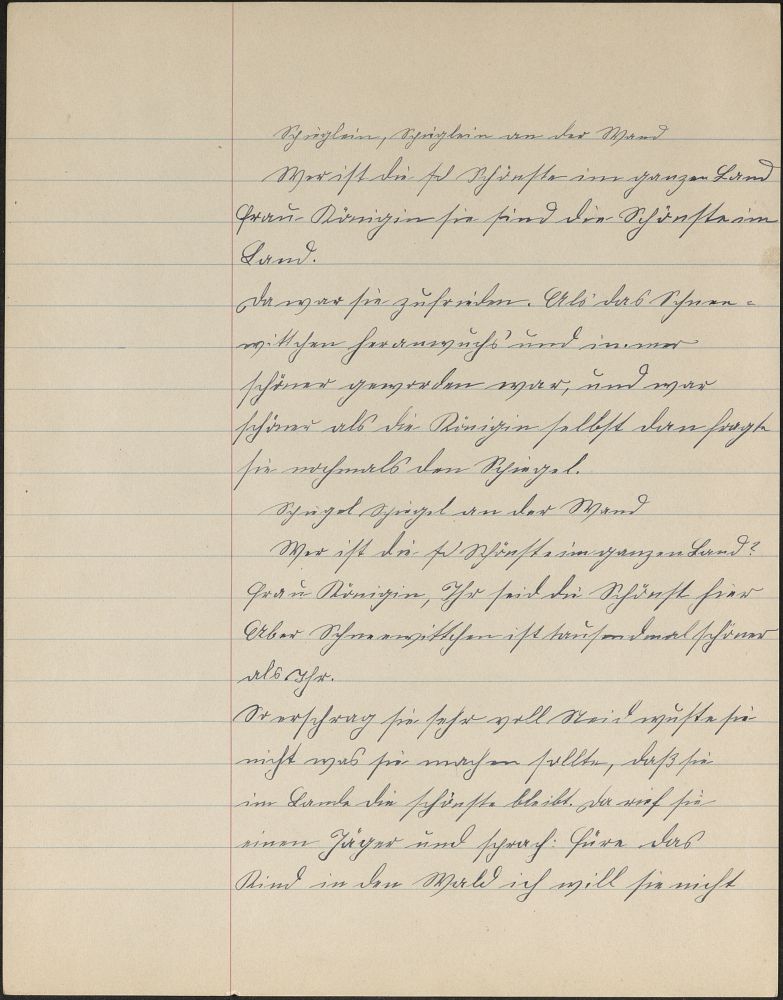 Spieglein, Spieglein an der Wand
Wer ist die Schönste im ganzen Land
Frau Königin sie sind die Schönste im
Land.
Da war sie zufrieden. Als das Schnee=
wittchen heranwuchs und immer
schöner geworden war, und war
schöner als die Königin selbst dan fragte
sie nochmals den Spiegel.
Spiegel Spiegel an der Wand
Wer ist die Schönste im ganzen Land?
Frau Königin, Ihr seid die Schönst hier
Aber Schneewittchen ist tausendmal schöner
als Ihr.
So erschrag sie sehr voll Neid wuste sie
nicht was sie machen sollte, daß sie
im Lande die schönste bleibt. Da rief sie
einen Jäger und sprach: füre das
Kind in den Wald ich will sie nicht